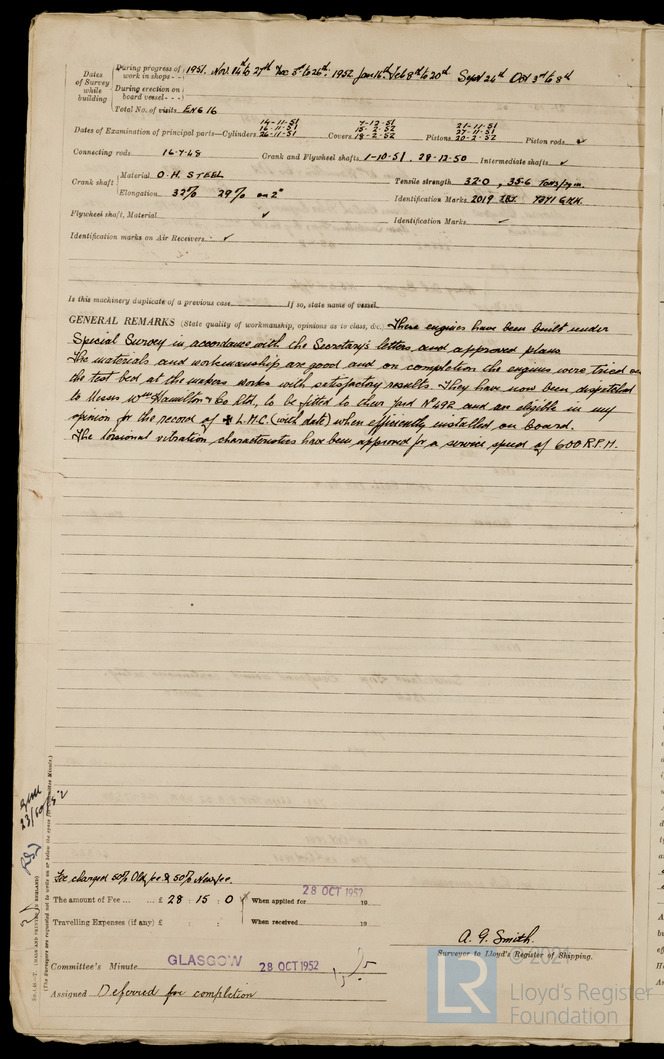 Dates of Survey while building
During progress of work in shops - - 1951. Nov. 14th to 27th Dec 3rd to 26th. 1952 Jan 16th Feb 8th to 20th Sept 24th Oct 3rd to 8th
During erection on board vessel - - -
Total No. of visits ENG 16
Dates of Examination of principal parts—Cylinders 14-11-51 16-11-51 26-11-51 Covers 7-12-51 15-2-52 18-2-52 Pistons 21-11-51 27-11-51 20-2-52 Piston rods ✓
Connecting rods 16-7-48 Crank and Flywheel shafts 1-10-51. 28-12-50 Intermediate shafts ✓
Crank shaft Material O.H. STEEL Tensile strength 32.0, 35.6 Tons/sq.in.
Elongation 32% 29% on 2" Identification Marks 2019
Flywheel shaft, Material ✓ Identification Marks ✓
Identification marks on Air Receivers ✓
Is this machinery duplicate of a previous case If so, state name of vessel
GENERAL REMARKS (State quality of workmanship, opinions as to class, &c.) These engines have been built under
Special Survey in accordance with the Secretary's letters and approved plans.
The materials and workmanship are good and on completion the engines were tried on
the test bed at the makers works with satisfactory results. They have now been despatched
to Messrs Wm Hamilton & Co Ltd, to be fitted to their Yard No 492 and are eligible in my
opinion for the record of ✠ L.M.C. (with date) when efficiently installed on board.
The torsional vibration characteristics have been approved for a service speed of 600 R.P.M.
Fee charged 50% Old fee & 50% New fee.
The amount of Fee ... ... £ 28 : 15 : 0 When applied for 28 OCT 1952 19
Travelling Expenses (if any) £ : : When received 19
A. G. Smith.
Surveyor to Lloyd's Register of Shipping.
Committee's Minute GLASGOW 28 OCT 1952
Assigned Deferred for completion
(The Surveyors are requested not to write on or below the space for Committee Minute.)
(MADE AND PRINTED IN ENGLAND)
23/10/52
© 2021
LR
Lloyd's Register
Foundation